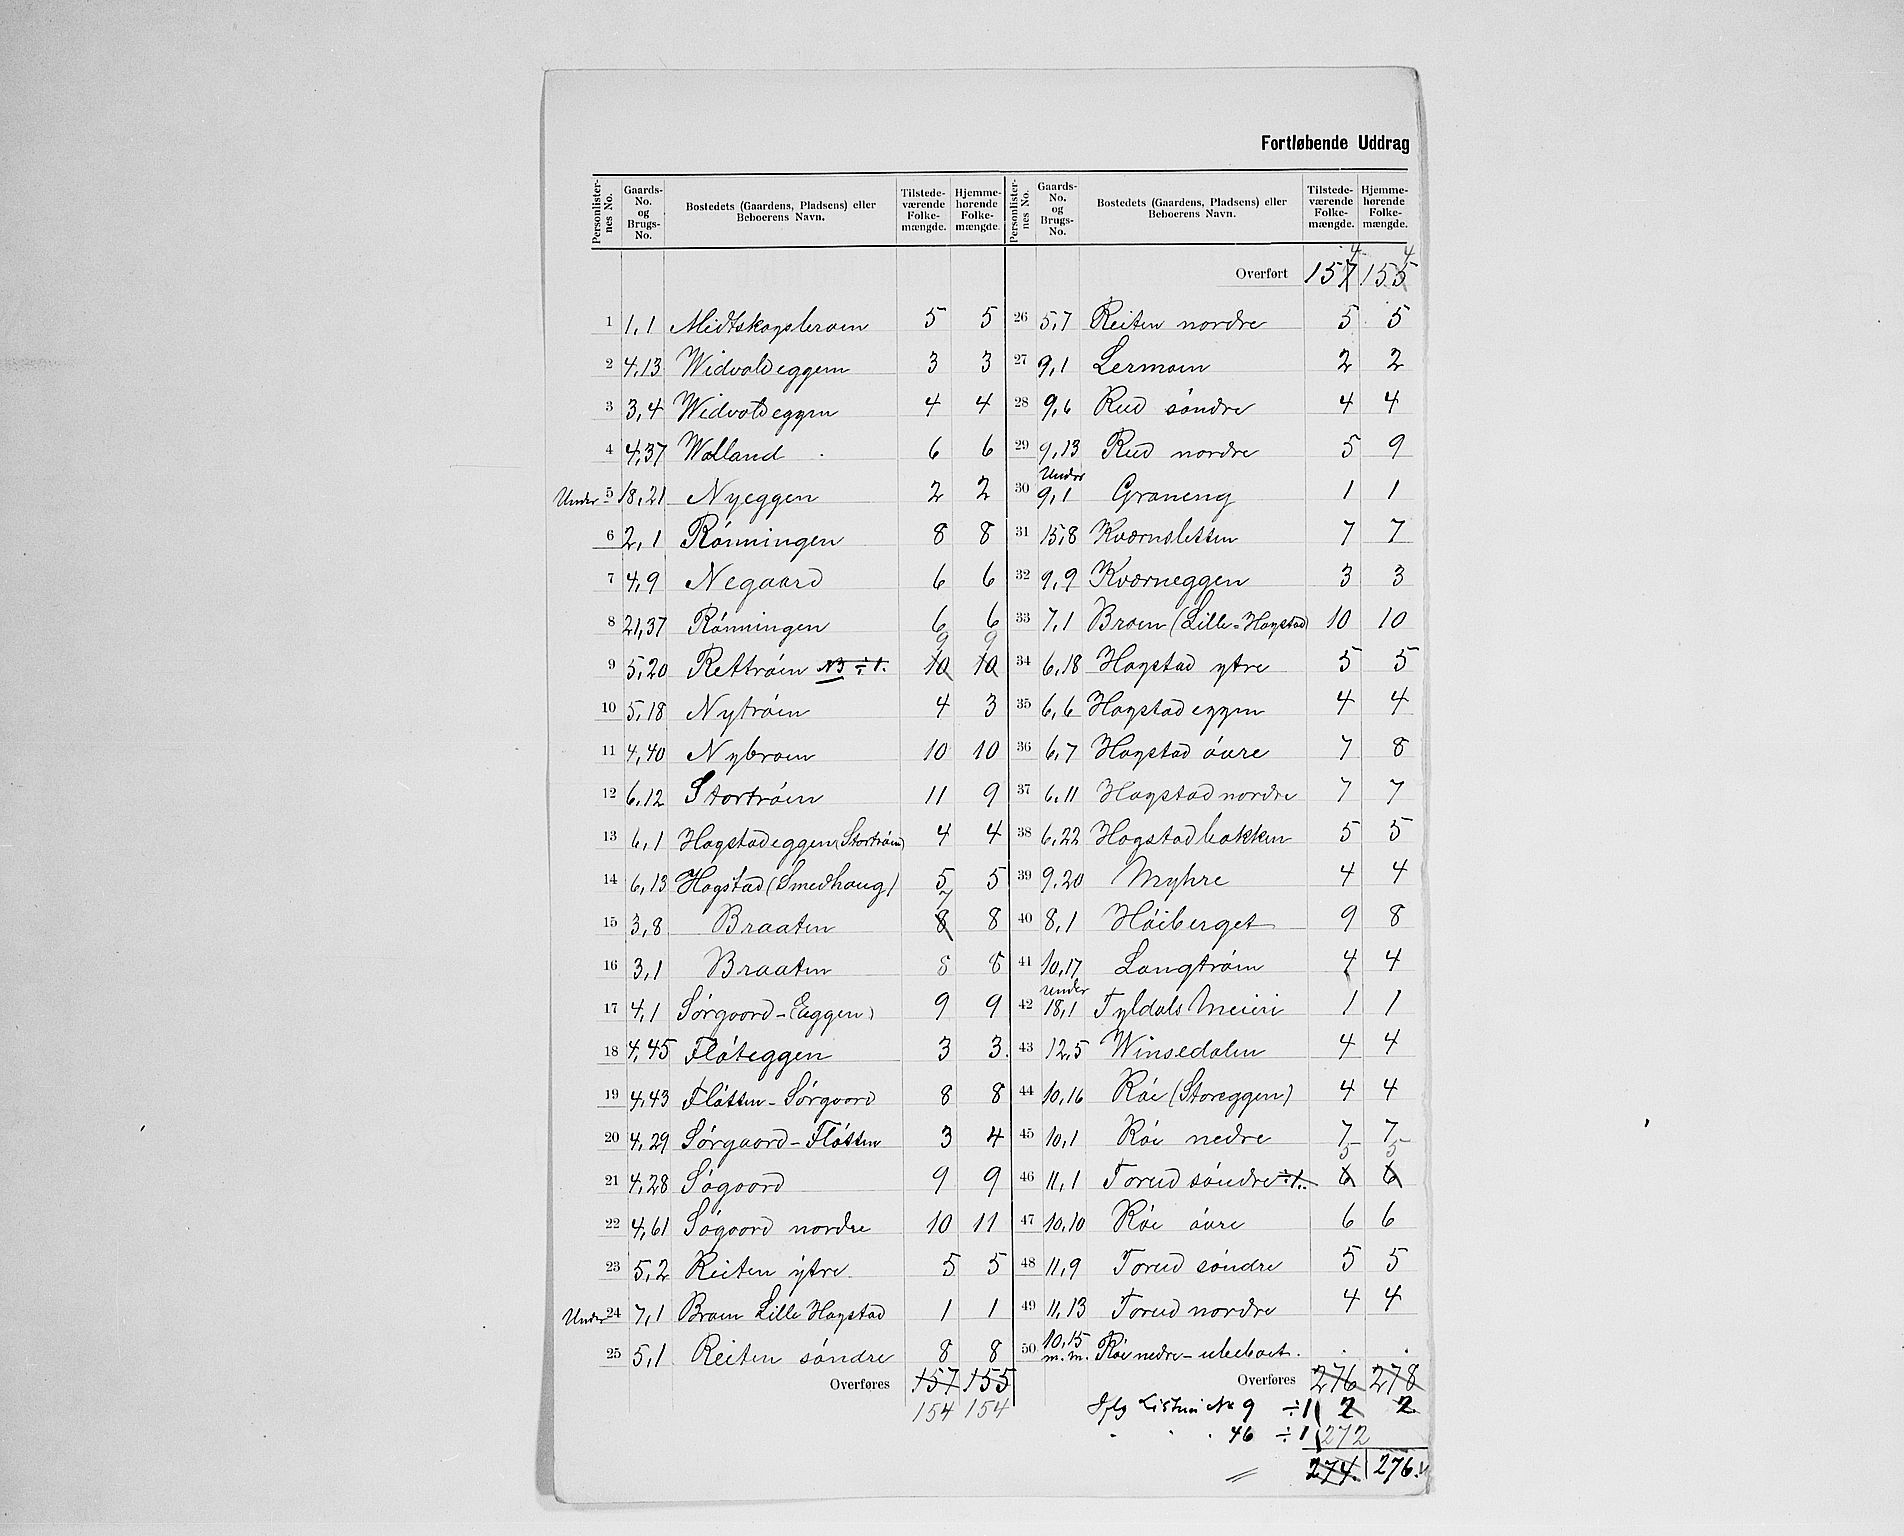 Fortløbende Uddrag
Personlister-nes No. | Gaards-No. og Brugs-No. | Bostedets (Gaardens, Pladsens) eller Beboerens Navn. | Tilstede-værende Folke-mængde. | Hjemme-hørende Folke-mængde.
1 | 1,1 | Midtskogsbroen | 5 | 5
2 | 4,13 | Widvoldeggen | 3 | 3
3 | 3,4 | Widvoldeggen | 4 | 4
4 | 4,37 | Wolland | 6 | 6
Under 5 | 18,21 | Nyeggen | 2 | 2
6 | 2,1 | Rónningen | 8 | 8
7 | 4,9 | Negaard | 6 | 6
8 | 21,37 | Rónningen | 6 | 6
9 | 5,20 | Rettróen NB ÷1. | 10 9 | 10 9
10 | 5,18 | Nytróen | 4 | 3
11 | 4,40 | Nybroen | 10 | 10
12 | 6,12 | Stortróen | 11 | 9
13 | 6,1 | Hogstadeggen (Stortróen) | 4 | 4
14 | 6,13 | Hogstad (Smedhaug) | 5 | 5
15 | 3,8 | Braaten | 8 7 | 8
16 | 3,1 | Braaten | 8 | 8
17 | 4,1 | Sórgaard - (Eggen) | 9 | 9
18 | 4,45 | Flóteggen | 3 | 3.
19 | 4,43 | Flótten - Sórgaard | 8 | 8
20 | 4,29 | Sórgaard - Flótten | 3 | 4
21 | 4,28 | Sógaard | 9 | 9
22 | 4,61 | Sógaard nordre | 10 | 11
23 | 5,2 | Reiten ytre | 5 | 5
Under 24 | 7,1 | Broen Lille Hogstad | 1 | 1
25 | 5,1 | Reiten sóndre | 8 | 8
Overføres | 157 | 155
154 | 154
Personlister-nes No. | Gaards-No. og Brugs-No. | Bostedets (Gaardens, Pladsens) eller Beboerens Navn. | Tilstede-værende Folke-mængde. | Hjemme-hørende Folke-mængde.
Overført | 157 4 | 155 4
26 | 5,7 | Reiten nordre | 5 | 5
27 | 9,1 | Lermoen | 2 | 2
28 | 9,6 | Rud sóndre | 4 | 4
29 | 9,13 | Rud nordre | 5 | 9
30 | Under 9,1 | Graneng | 1 | 1
31 | 15,8 | Kværnsletten | 7 | 7
32 | 9,9 | Kværneggen | 3 | 3
33 | 7,1 | Broen (Lille-Hogstad) | 10 | 10
34 | 6,18 | Hogstad ytre | 5 | 5
35 | 6,6 | Hogstadeggen | 4 | 4
36 | 6,7 | Hogstad óvre | 7 | 8
37 | 6,11 | Hogstad nordre | 7 | 7
38 | 6,22 | Hogstadbakken | 5 | 5
39 | 9,20 | Myhre | 4 | 4
40 | 8,1 | Hóiberget | 9 | 8
41 | 10,17 | Langtróen | 4 | 4
42 | under 18,1 | Tyldals Meieri | 1 | 1
43 | 12,5 | Winsedalen | 4 | 4
44 | 10,16 | Róe (Storeggen) | 4 | 4
45 | 10,1 | Róe nedre | 7 | 7
46 | 11,1 | Torud sóndre ÷1. | 6 5 | 6 5
47 | 10,10 | Róe óvre | 6 | 6
48 | 11,9 | Torud sóndre | 5 | 5
49 | 11,13 | Torud nordre | 4 | 4
50 | 10,15 m.m. | Róe nedre - ubeboet. | . | .
Overføres | 276 | 278
Iflg Listen No 9 ÷1 | 2 | 2
" " 46 ÷1 | 272
= 274. | 276.